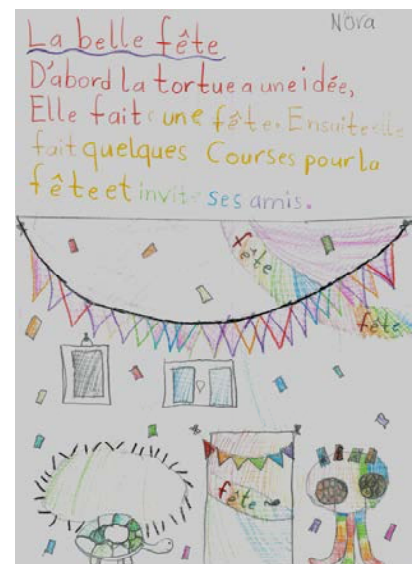 Nora
La belle fête
D'abord la tortue a une idée,
Elle fait une fête. Ensuite elle
fait quelques Courses pour la
fête et invite ses amis.
fête
fête
fête